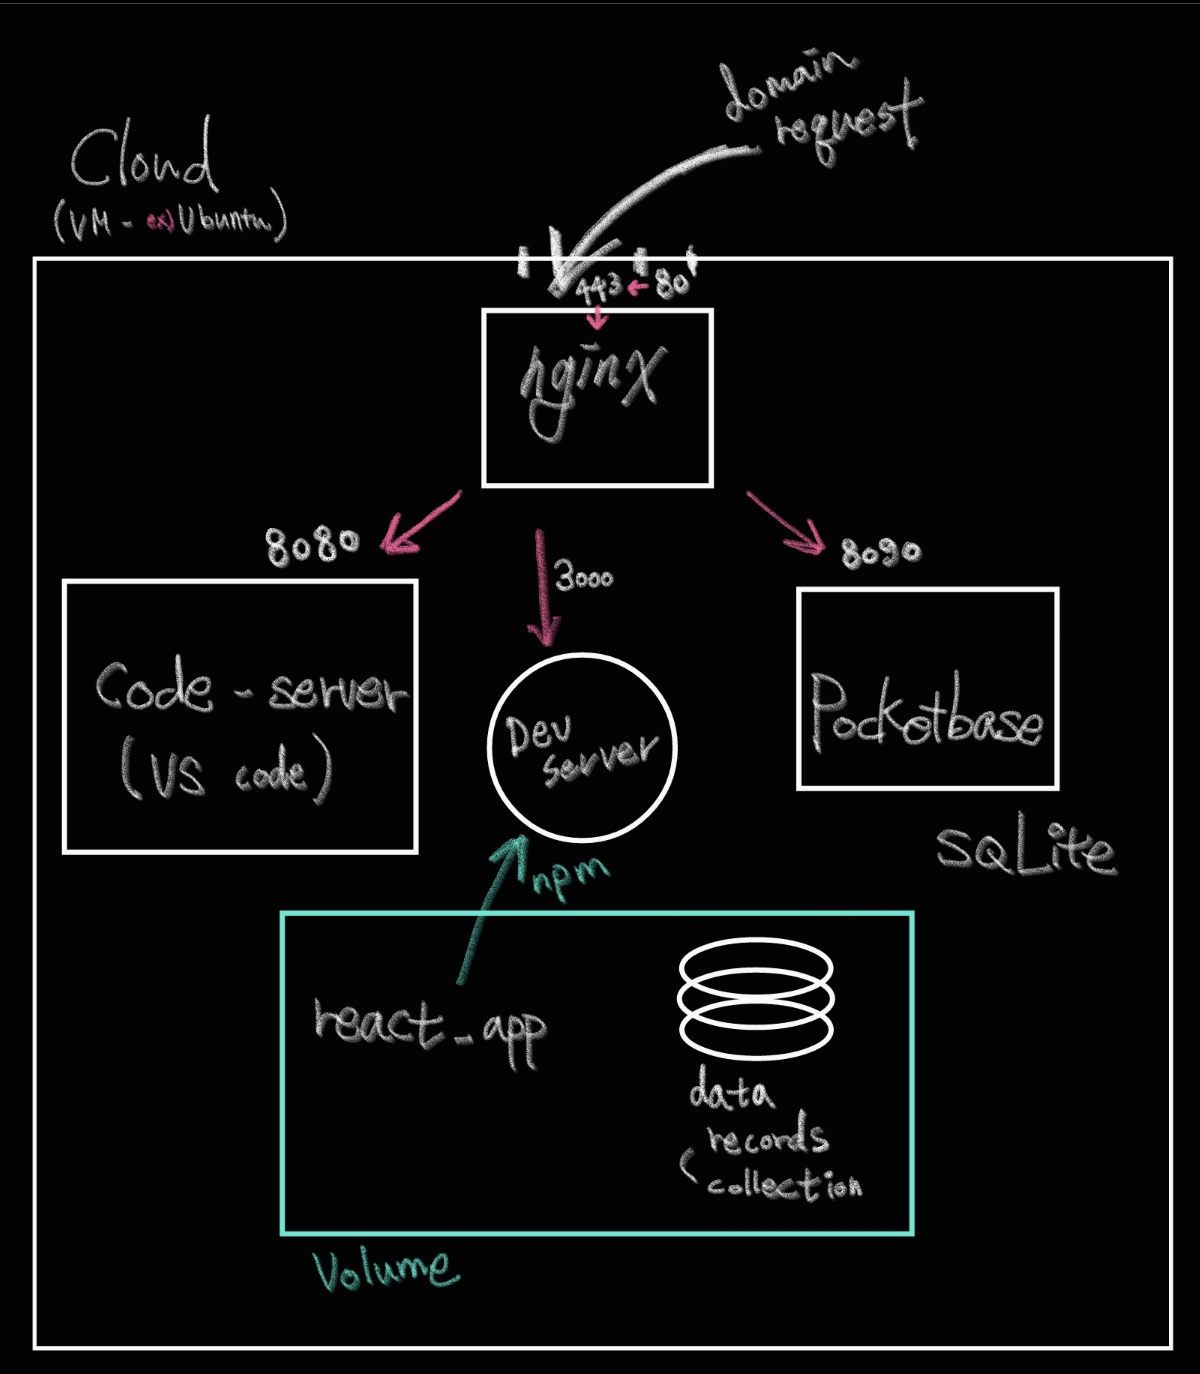 domain
request
Cloud
(VM - ex) Ubuntu)
443 ← 80
nginx
8080
3000
8090
Code-server
(VS code)
Dev
server
Pocketbase
SQLite
npm
react_app
data
records
collection
Volume